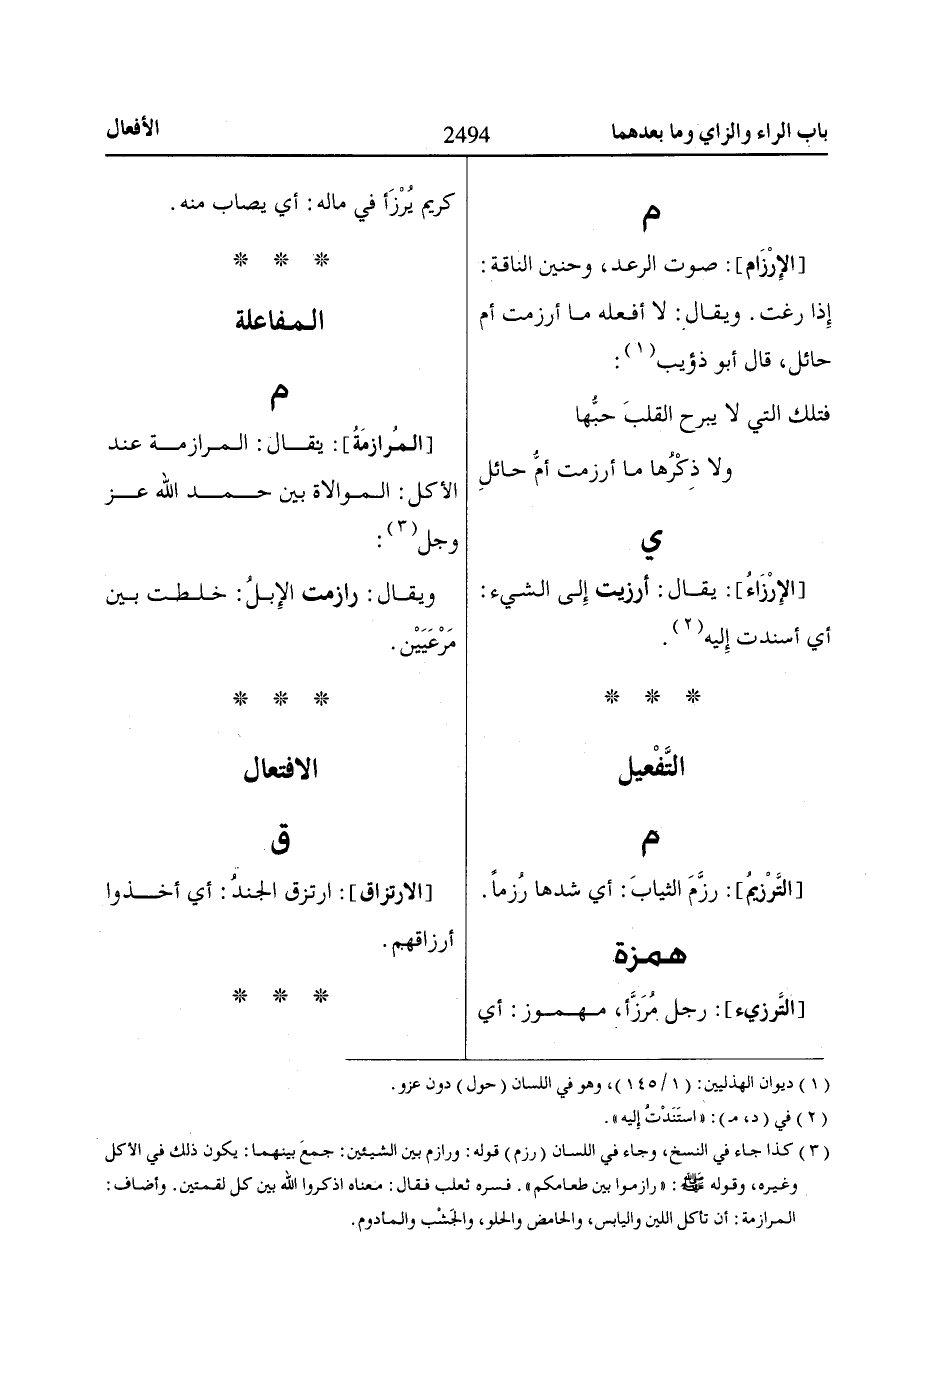 باب الراء والزاي وما بعدهما 2494 الأفعال
م
[الإِرْزَام]: صوت الرعد، وحنين الناقة:
إِذا رغت. ويقال: لا أفعله ما أرزمت أم
حائل، قال أبو ذؤيب(١):
فتلك التي لا يبرح القلبَ حبُّها
ولا ذِكْرُها ما أرزمت أمُّ حائلِ
ي
[الإِرْزَاءُ]: يقال: أرزيت إِلى الشيء:
أي أسندت إِليه(٢).
* * *
التَّفْعيل
م
[التَّرْزيمُ]: رزَّمَ الثيابَ: أي شدها رُزماً.
همزة
[التَّرزيء]: رجل مُرَزَّأ، مهموز: أي
كريم يُرْزَأ في ماله: أي يصاب منه.
* * *
المفاعلة
م
[المُرازمَةُ]: يقال: المرازمة عند
الأكل: الموالاة بين حمد الله عز
وجل(٣):
ويقال: رازمت الإِبلُ: خلطت بين
مَرْعَيَيْن.
* * *
الافتعال
ق
[الارتزاق]: ارتزق الجندُ: أي أخذوا
أرزاقهم.
* * *
(١) ديوان الهذليين: (١/ ١٤٥)، وهو في اللسان (حول) دون عزو.
(٢) في (د، م): «استَنَدْتُ إِليه».
(٣) كذا جاء في النسخ، وجاء في اللسان (رزم) قوله: ورازم بين الشيئين: جمعَ بينهما: يكون ذلك في الأكل
وغيره، وقوله ﷺ: «رازموا بين طعامكم». فسره ثعلب فقال: معناه اذكروا الله بين كل لقمتين. وأضاف:
المرازمة: أن تأكل اللين واليابس، والحامض والحلو، والجَشْب والمأدوم.